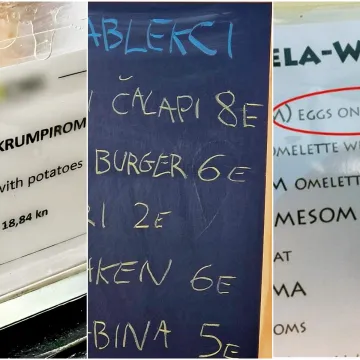 KRUMPIROM
with potatoes
18,84 kn
ABLEKCI
ČALAPI 8E
BURGER 6E
I 2E
KEN 6E
BINA 5E
ELA-W
) EGGS ON
OMELETTE WI
M OMELETT
MESOM
AT
MA
OMS